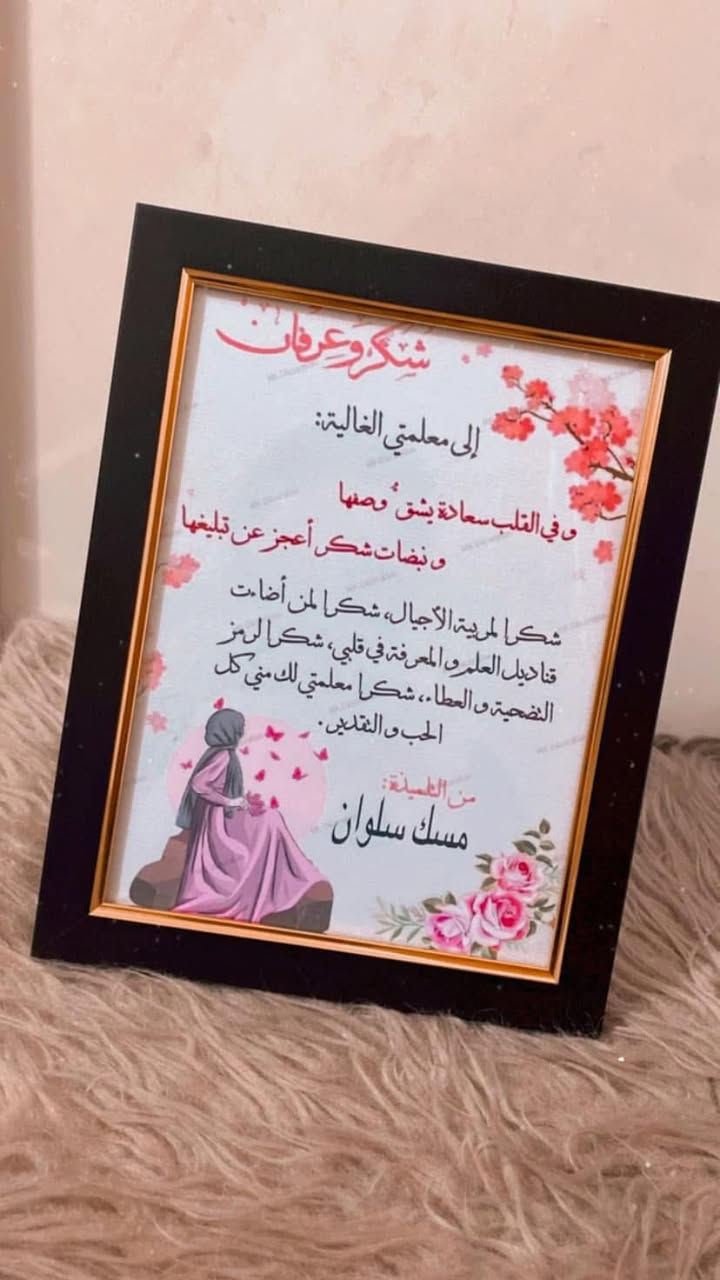 شكر وعرفان
إلى معلمتي الغالية:
وفي القلب سعادة يشقُ وصفها
ونبضات شكر أعجز عن تبليغها
شكرا لمربية الأجيال، شكرا لمن أضاءت
قناديل العلم والمعرفة في قلبي، شكرا لرمز
التضحية والعطاء، شكرا معلمتي لك مني كل
الحب والتقدير.
من التلميذة:
مسك سلوان